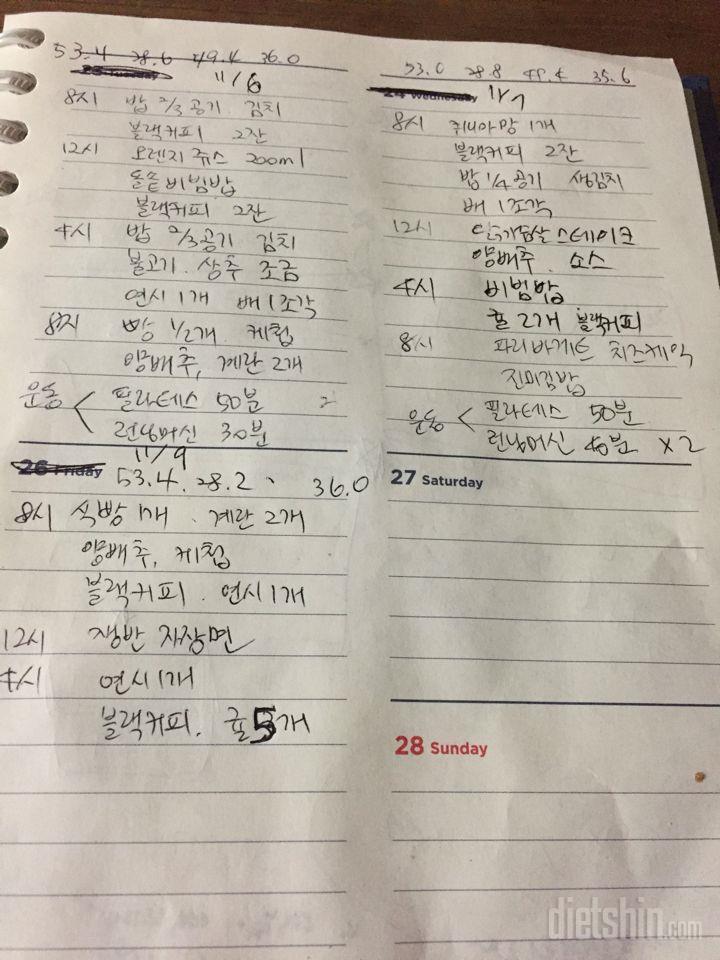 53.4 28.6 49.4 36.0
11/6
8시 밥 2/3공기 김치
블랙커피 2잔
12시 오렌지 쥬스 200ml
돌솥비빔밥
블랙커피 2잔
4시 밥 2/3공기 김치
불고기. 상추 조금
연시 1개 배 1조각
8시 빵 1/2개. 케첩
양배추, 계란 2개
운동 < 필라테스 50분
런닝머신 30분
53.0 28.8 49.4 35.6
24 Wednesday 11/7
8시 쥐니아망 1개
블랙커피 2잔
밥 1/4공기 생김치
배 1조각
12시 닭가슴살 스테이크
양배추. 소스
4시 비빔밥
귤 2개 블랙커피
8시 파리바게트 치즈케익
진미김밥
운동 < 필라테스 50분
런닝머신 40분 x2
26 Friday 11/9
53.4. 28.2 、 36.0
8시 식빵 1개. 계란 2개
양배추, 케첩
블랙커피. 연시 1개
12시 쟁반 자장면
4시 연시 1개
블랙커피. 귤 5개
27 Saturday
28 Sunday
dietshin.com